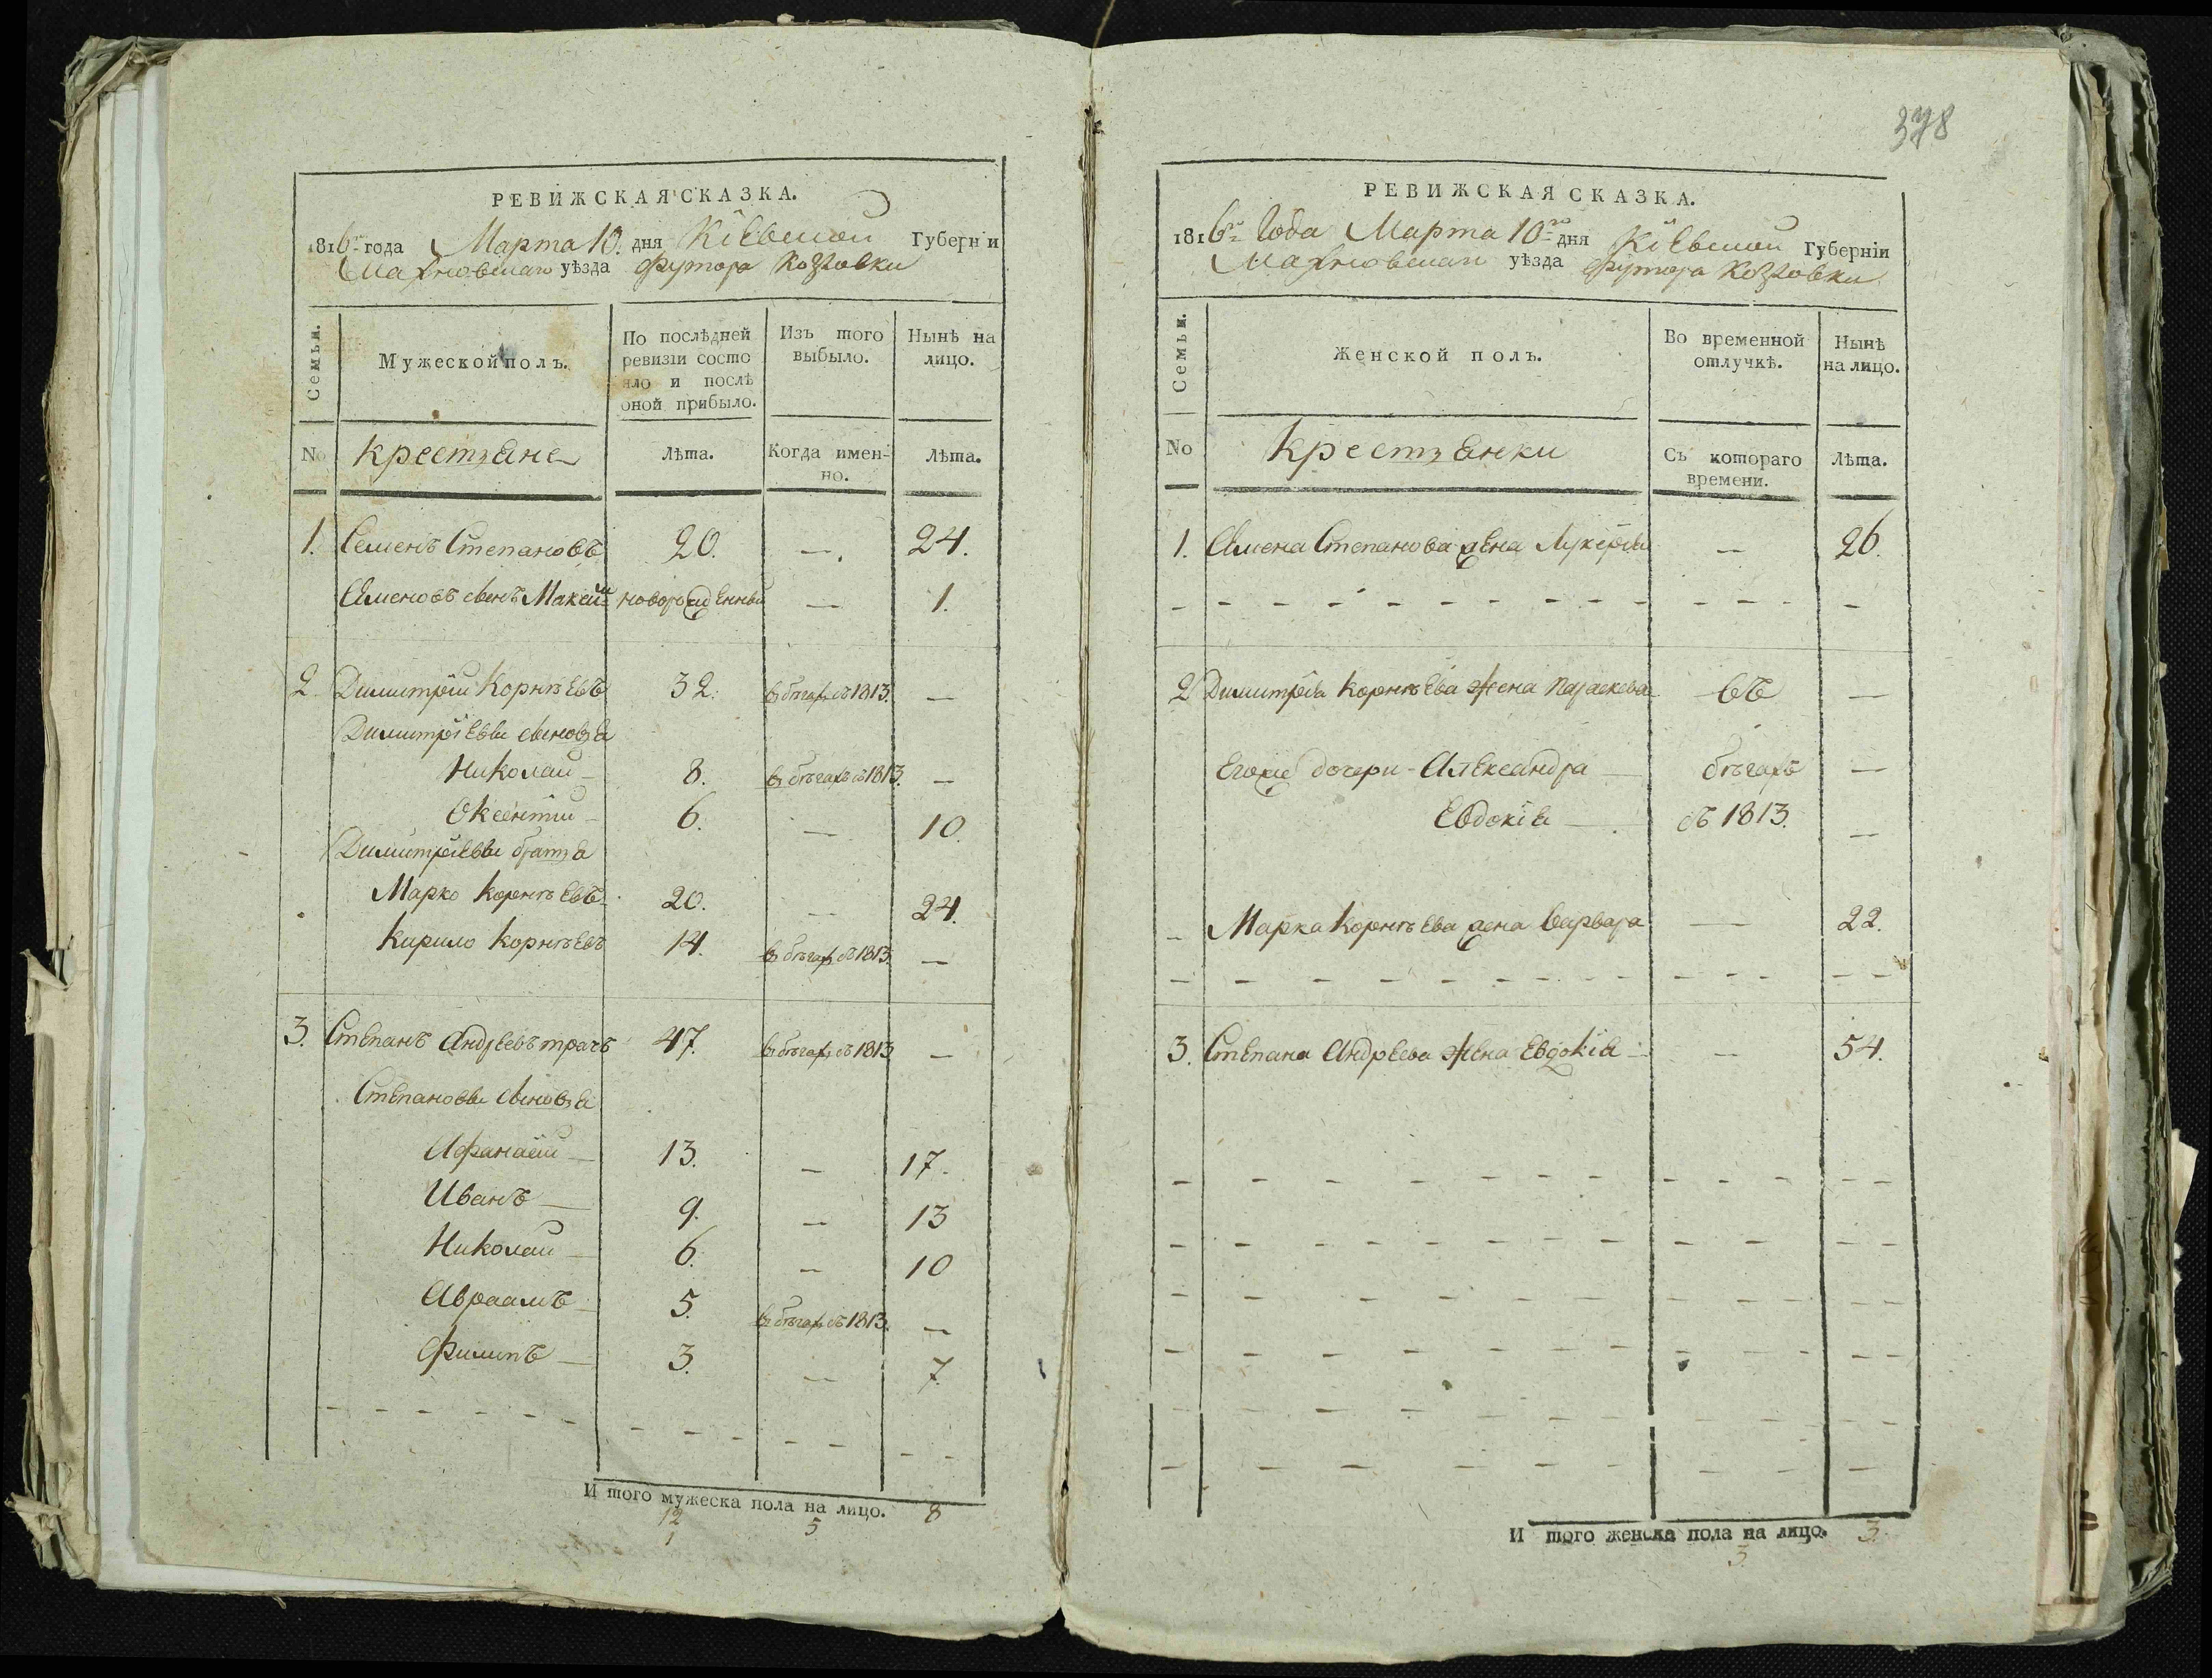 РЕВИЖСКАЯ СКАЗКА.
1816го года Марта 10. дня Кіевской Губерніи
Махновскаго уѣзда футора Козловки
Семьи.
Мужеской полъ.
По послѣдней ревизіи состо
яло и послѣ
оной прибыло.
Изъ того выбыло.
Нынѣ на лицо.
No
крестьяне
Лѣта.
Когда имен-
но.
Лѣта.
1. Семенъ Степановъ 20. —. 24.
Семеновъ сынъ Максим новорожденный — 1.
2 Димитрій Корнѣевъ 32. въ бѣгахъ съ 1813. —
Димитріевы сыновья
Николай — 8. въ бѣгахъ съ 1813. —
Оксентій — 6. — 10.
Димитріевы братья
Марко Корнѣевъ 20. — 24.
Кирило Корнѣевъ 14. въ бѣгахъ съ 1813. —
3. Степанъ Андреевъ трачъ 47. въ бѣгахъ съ 1813 —
Степановы сыновья
Афанасій — 13. — 17.
Иванъ — 9. — 13
Николай — 6. — 10
Авраамъ 5. въ бѣгахъ съ 1813. —
Филипъ — 3. — 7.
И того мужеска пола на лицо. 8
12 5
1
378
РЕВИЖСКАЯ СКАЗКА.
1816го Года Марта 10го дня Кіевской Губерніи
Махновскаго уѣзда футора Козловки
Семьи.
Женской полъ.
Во временной
отлучкѣ.
Нынѣ
на лицо.
No
Крестьянки
Съ котораго
времени.
Лѣта.
1. Семена Степанова жена Лукерія — 26.
2 Димитрія Корнѣева жена Параскева въ —
Егоже дочери - Александра — бѣгахъ —
Евдокія — съ 1813. —
Марка Корнѣева жена Варвара — 22.
3. Степана Андреева жена Евдокія — 54.
И того женска пола на лицо. 3.
3.